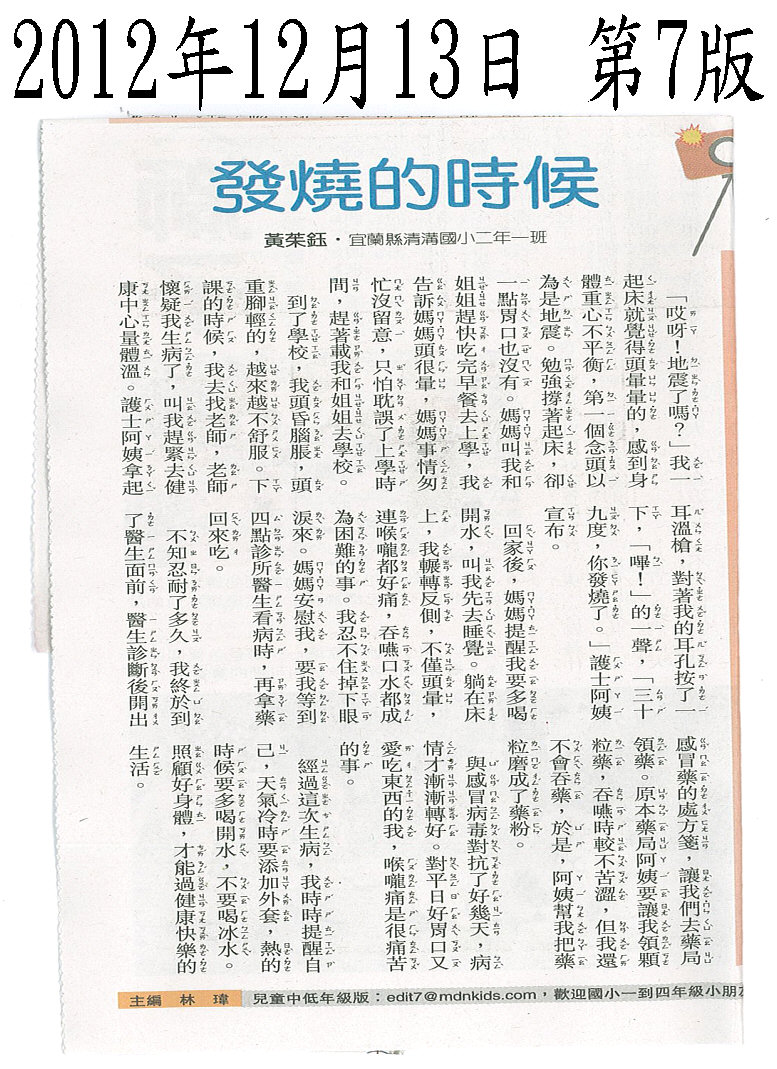 2012年12月13日 第7版
發燒的時候
黃茱鈺・宜蘭縣清溝國小二年一班
「哎呀！地震了嗎？」我一
起床就覺得頭暈暈的，感到身
體重心不平衡，第一個念頭以
為是地震。勉強撐著起床，卻
一點胃口也沒有。媽媽叫我和
姐姐趕快吃完早餐去上學，我
告訴媽媽頭很暈，媽媽事情匆
忙沒留意，只怕耽誤了上學時
間，趕著載我和姐姐去學校。
到了學校，我頭昏腦脹，頭
重腳輕的，越來越不舒服。下
課的時候，我去找老師，老師
懷疑我生病了，叫我趕緊去健
康中心量體溫。護士阿姨拿起
耳溫槍，對著我的耳孔按了一
下，「嗶！」的一聲，「三十
九度，你發燒了。」護士阿姨
宣布。
回家後，媽媽提醒我要多喝
開水，叫我先去睡覺。躺在床
上，我輾轉反側，不僅頭暈，
連喉嚨都好痛，吞嚥口水都成
為困難的事。我忍不住掉下眼
淚來。媽媽安慰我，要我等到
四點診所醫生看病時，再拿藥
回來吃。
不知忍耐了多久，我終於到
了醫生面前，醫生診斷後開出
感冒藥的處方箋，讓我們去藥局
領藥。原本藥局阿姨要讓我領顆
粒藥，吞嚥時較不苦澀，但我還
不會吞藥，於是，阿姨幫我把藥
粒磨成了藥粉。
與感冒病毒對抗了好幾天，病
情才漸漸轉好。對平日好胃口又
愛吃東西的我，喉嚨痛是很痛苦
的事。
經過這次生病，我時時提醒自
己，天氣冷時要添加外套，熱的
時候要多喝開水，不要喝冰水。
照顧好身體，才能過健康快樂的
生活。
主編 林瑋 兒童中低年級版：edit7@mdnkids.com，歡迎國小一到四年級小朋友